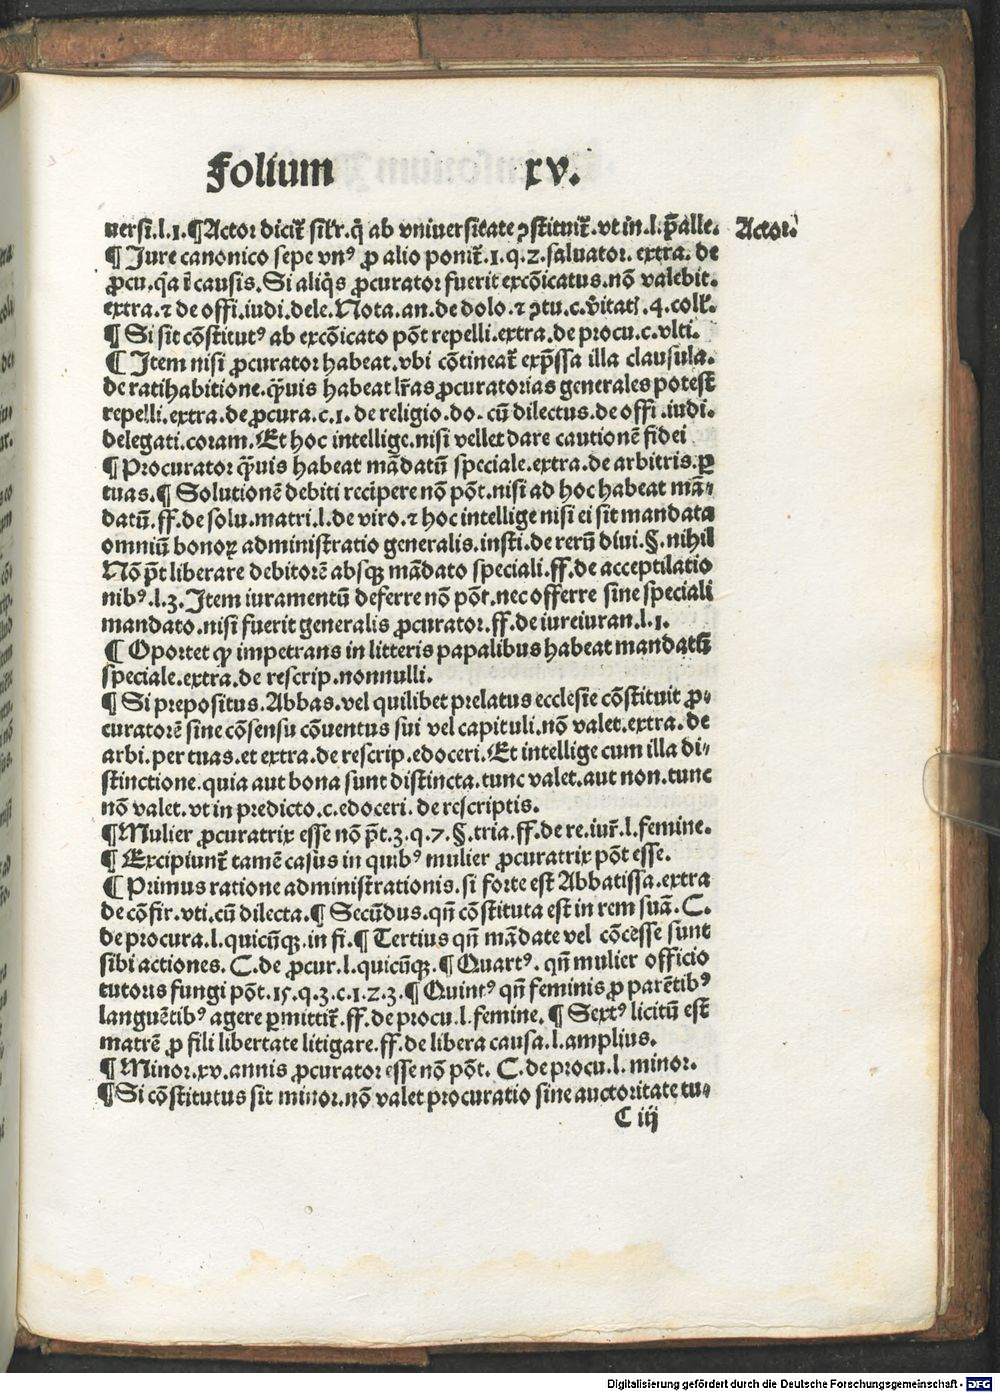 Folium xv.
uersi.l.1.¶Actor dicit̃ sil̃r.q̃ ab vniuersitate ꝯstituit̃.vt in.l.p̃alle. Actor.
¶ Jure canonico sepe vnꝰ ꝓ alio ponit̃.1.q.2.saluator. extra. de
ꝓcu.q̃a ĩ causis. Si aliq̃s ꝓcurator fuerit excõicatus.nõ valebit.
extra.⁊ de offi.iudi.dele.Nota.an.de dolo.⁊ ꝯtu.c.ṽitati.4.coll̃.
¶ Si sit cõstitutꝰ ab excõicato põt repelli.extra.de procu.c.vlti.
¶ Item nisi ꝓcurator habeat.vbi cõtineat̃ exp̃ssa illa clausula.
de ratihabitione.q̃uis habeat lr̃as ꝓcuratorias generales potest
repelli.extra.de ꝓcura.c.1. de religio.do. cũ dilectus.de offi.iudi.
delegati.coram.Et hoc intellige.nisi vellet dare cautionẽ fidei
¶Procurator q̃uis habeat mãdatũ speciale.extra.de arbitris.ꝑ
tuas.¶ Solutionẽ debiti recipere nõ põt.nisi ad hoc habeat mã⸗
datũ.ff.de solu.matri.l.de viro.⁊ hoc intellige nisi ei sit mandata
omniũ bonoꝝ administratio generalis.insti.de rerũ diui.§.nihil
Nõ p̃t liberare debitorẽ absqꝫ mãdato speciali.ff.de acceptilatio
nibꝰ.l.3.Item iuramentũ deferre nõ põt.nec offerre sine speciali
mandato.nisi fuerit generalis ꝓcurator.ff.de iureiuran.l.1.
¶ Oportet ꝙ impetrans in litteris papalibus habeat mandatũ
speciale.extra.de rescrip.nonnulli.
¶ Si prepositus.Abbas.vel quilibet prelatus ecclesie cõstituit ꝓ⸗
curatorẽ sine cõsensu cõuentus sui vel capituli.nõ valet.extra.de
arbi.per tuas.et extra.de rescrip.edoceri.Et intellige cum illa di⸗
stinctione.quia aut bona sunt distincta.tunc valet.aut non.tunc
nõ valet.vt in predicto.c.edoceri.de rescriptis.
¶Mulier ꝓcuratrix esse nõ p̃t.3.q.7.§.tria.ff.de re.iur̃.l.femine.
¶ Excipiunt̃ tamẽ casus in quibꝰ mulier ꝓcuratrix põt esse.
¶ Primus ratione administrationis.si forte est Abbatissa.extra
de cõfir.vti.cũ dilecta.¶ Secũdus.qñ cõstituta est in rem suã.C.
de procura.l.quicũqꝫ.in fi.¶ Tertius qñ mãdate vel cõcesse sunt
sibi actiones. C.de ꝓcur.l.quicũqꝫ.¶ Quartꝰ. qñ mulier officio
tutoris fungi põt.15.q.3.c.1.2.3.¶ Quintꝰ qñ feminis ꝓ parẽtibꝰ
languẽtibꝰ agere ꝑmittit̃.ff.de procu.l.femine.¶ Sextꝰ licitũ est
matrẽ ꝓ fili libertate litigare.ff.de libera causa.l.amplius.
¶ Minor.xv.annis ꝓcurator esse nõ põt. C.de procu.l. minor.
¶Si cõstitutus sit minor.nõ valet procuratio sine auctoritate tu⸗
C iij
Digitalisierung gefördert durch die Deutsche Forschungsgemeinschaft - DFG